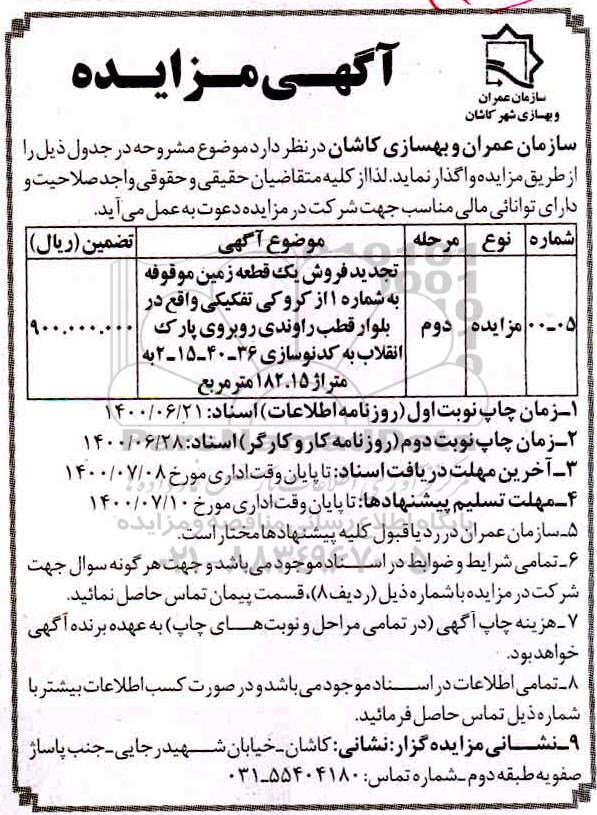 آگهی مزایده
سازمان عمران
و بهسازی شهر کاشان
سازمان عمران و بهسازی کاشان در نظر دارد موضوع مشروحه در جدول ذیل را
از طریق مزایده واگذار نماید. لذا از کلیه متقاضیان حقیقی و حقوقی واجد صلاحیت و
دارای توانائی مالی مناسب جهت شرکت در مزایده دعوت به عمل می‌آید.
شماره نوع مرحله موضوع آگهی تضمین (ریال)
تجدید فروش یک قطعه زمین موقوفه
به شماره ۱ از کروکی تفکیکی واقع در
۰۵-۰۰ مزایده دوم بلوار قطب راوندی روبروی پارک ۹۰۰.۰۰۰.۰۰۰
انقلاب به کدنوسازی ۳۶-۴۰-۱۵-۲ به
متراژ ۱۸۲.۱۵ مترمربع
۱-زمان چاپ نوبت اول (روزنامه اطلاعات) اسناد: ۱۴۰۰/۰۶/۲۱
۲-زمان چاپ نوبت دوم (روزنامه کار و کارگر) اسناد: ۱۴۰۰/۰۶/۲۸
۳-آخرین مهلت دریافت اسناد: تا پایان وقت اداری مورخ ۱۴۰۰/۰۷/۰۸
۴-مهلت تسلیم پیشنهادها: تا پایان وقت اداری مورخ ۱۴۰۰/۰۷/۱۰
۵-سازمان عمران در رد یا قبول کلیه پیشنهادها مختار است.
۶-تمامی شرایط و ضوابط در اسناد موجود می‌باشد و جهت هرگونه سوال جهت
شرکت در مزایده با شماره ذیل (ردیف ۸)، قسمت پیمان تماس حاصل نمائید.
۷-هزینه چاپ آگهی (در تمامی مراحل و نوبت‌های چاپ) به عهده برنده آگهی
خواهد بود.
۸-تمامی اطلاعات در اسناد موجود می‌باشد و در صورت کسب اطلاعات بیشتر با
شماره ذیل تماس حاصل فرمائید.
۹-نشانی مزایده‌گزار: نشانی: کاشان-خیابان شهید رجایی-جنب پاساژ
صفویه طبقه دوم-شماره تماس: ۵۵۴۰۴۱۸۰-۰۳۱